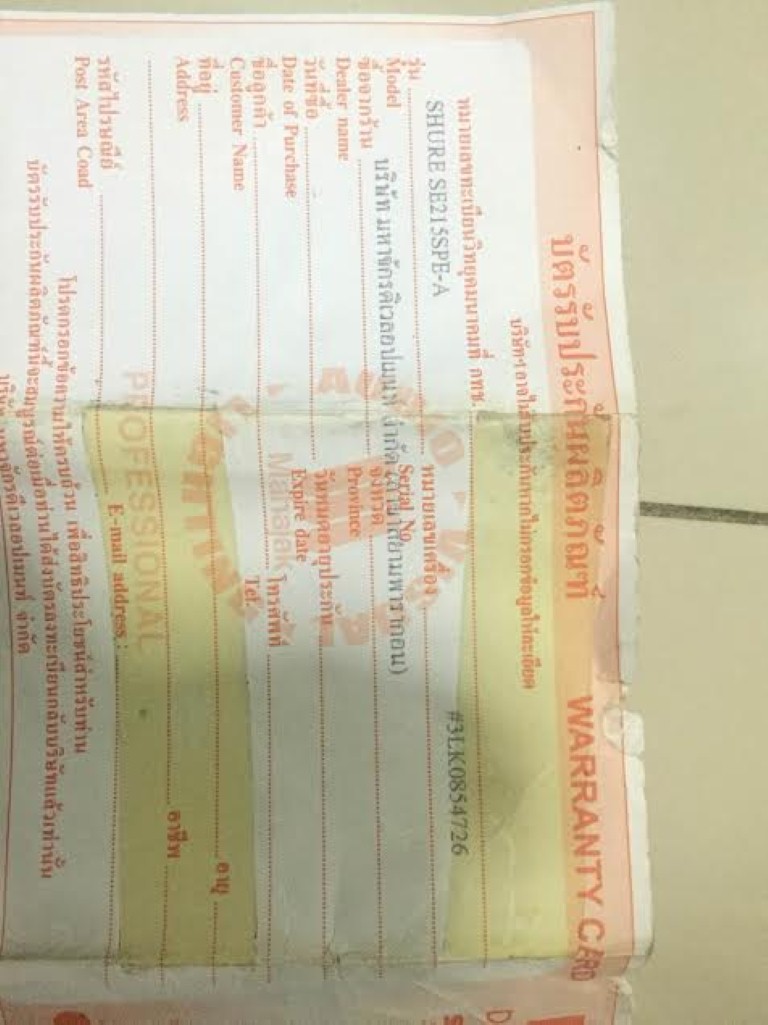 บัตรรับประกันผลิตภัณฑ์ WARRANTY CARD
บริษัทฯ อาจไม่รับประกันหากไม่กรอกข้อมูลให้ละเอียด
หมายเลขทะเบียนวิทยุคมนาคมที่ กทช.
SHURE SE215SPE-A #3LK0854726
รุ่น หมายเลขเครื่อง
Model Serial No.
บริษัท มหาจักรดีเวลอปเมนท์ จำกัด (สาขาสยามพารากอน)
ซื้อจากร้าน จังหวัด
Dealer name Province
วันที่ซื้อ วันหมดอายุประกัน
Date of Purchase Expire date
ชื่อลูกค้า โทรศัพท์
Customer Name Tel.
ที่อยู่ อายุ
Address
อาชีพ
รหัสไปรษณีย์ E-mail address :
Post Area Coad
โปรดกรอกข้อความให้ครบถ้วน เพื่อสิทธิประโยชน์สำหรับท่าน
บัตรรับประกันผลิตภัณฑ์นี้จะสมบูรณ์ต่อเมื่อท่านได้ส่งบัตรลงทะเบียนกลับบริษัทแล้วเท่านั้น
บริษัท มหาจักรดีเวลอปเมนท์ จำกัด
Mahajak
PROFESSIONAL